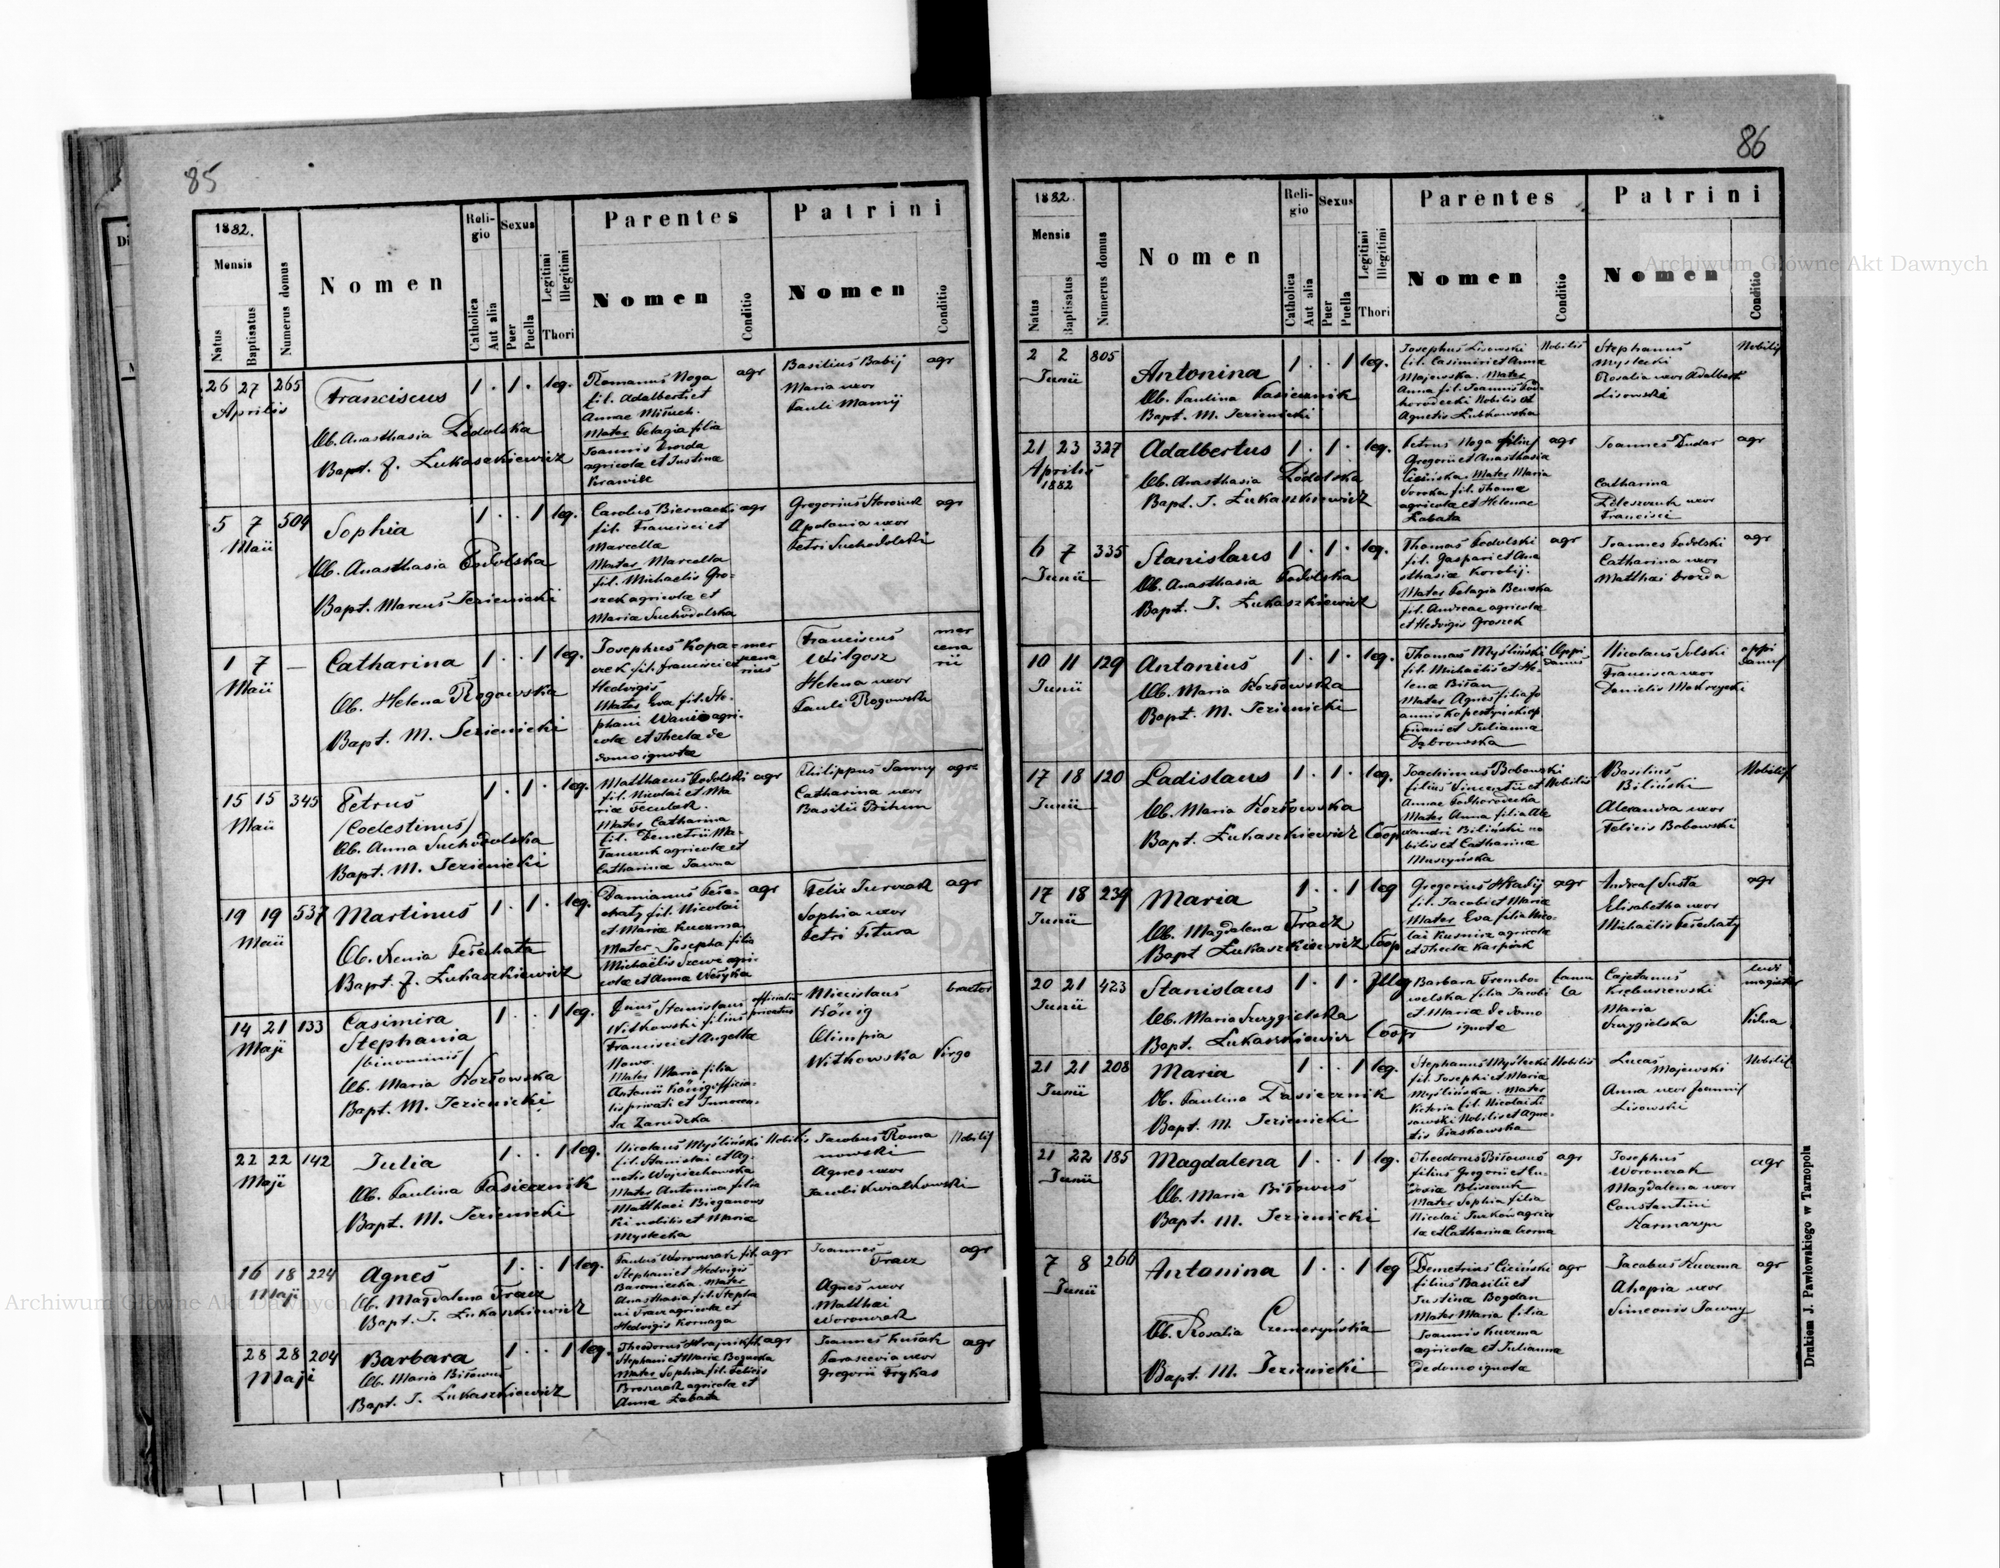 85
1882.
Mensis
Natus
Baptisatus
Numerus domus
Nomen
Religio
Catholica
Aut alia
Sexus
Puer
Puella
Legitimi
Illegitimi
Thori
Parentes
Nomen
Conditio
Patrini
Nomen
Conditio
26 27 265
Aprilis
Franciscus
Ob. Anasthasia Dodolska
Bapt. J. Lukaszkiewicz
1 . 1 . leg.
Romanus Noga
fil. Adalberti et
Annae
Mater Pelagia filia
Joannis
agricolæ et Justinæ
agr
Basilius Babij
Maria uxor
Pauli Mamij
agr
5 7 504
Maii
Sophia
Ob. Anasthasia Podolska
Bapt. Marcus Jezienicki
1 . . 1 leg.
Carolus Biernacki
fil. Francisci et
Marcella
Mater Marcella
fil. Michaelis Gro-
szek agricolæ et
Maria Suchodolska
agr
Gregorius
Apolonia uxor
Petri Suchodolski
agr
1 7 —
Maii
Catharina
Ob. Helena Rogowska
Bapt. M. Jezienicki
1 . . 1 leg.
Josephus Kopa-
czek fil. Francisci et
Hedvigis
Mater Eva fil. Ste-
phani Wanio agri-
colæ et Thecla de
domo ignota
mer
cena
rius
Franciscus
Wilgosz
Helena uxor
Pauli Rogowski
mer
cena
rii
15 15 345
Maii
Petrus
/Coelestinus/
Ob. Anna Suchodolska
Bapt. M. Jezienicki
1 . 1 . leg.
Matthaeus Podolski
fil. Nicolai et Ma
ria
Mater Catharina
fil. Demetrii Ma-
agricolæ et
Catharinæ Jawna
agr
Philippus Jawny
Catharina uxor
Basilii Bihun
agr
19 19 537
Maii
Martinus
Ob. Xenia Pešechata
Bapt. J. Lukaszkiewicz
1 . 1 . leg.
Damianus Peše-
chaty fil. Nicolai
et Mariæ Kuczma
Mater Josepha filia
Michaëlis Szewc agri-
colæ et Anna
agr
Felix Jurczak
Sophia uxor
Petri Pitura
agr
14 21 133
Maji
Casimira
Stephania
/binominis/
Ob. Maria Kozłowska
Bapt. M. Jezienicki
1 . . 1 leg.
Stanislaus
Witkowski filius
Francisci et Angelæ
Nowo.
Mater Maria filia
Antonii König officia-
lis privati et Innocen-
ta Zarudzka.
officialis
privatus
Micislaus
König
Olimpia
Witkowska
Virgo
22 22 142
Maji
Julia
Ob. Paulina Pasiecznik
Bapt. M. Jezienicki
1 . . 1 leg.
Nicolaus Myśliński
fil. Stanislai et Ag-
netis Wojciechowska
Mater Antonina filia
Matthaei Bieganows
ki nobilis et Mariæ
Mystecka
Nobilis
Jacobus Roma
nowski
Agnes uxor
Jacobi Kwiatkowski
Nobilis
16 18 224
Maji
Agnes
Ob. Magdalena Tracz
Bapt. J. Lukaszkiewicz
1 . . 1 leg.
Paulus Woronczak fil.
Stephani et Hedvigis
Baraniecka. Mater
Anasthasia fil. Stepha
ni Tracz agricolæ et
Hedvigis Kornaga
agr
Joannes
Tracz
Agnes uxor
Matthai
Woronczak
agr
28 28 204
Maji
Barbara
Ob. Maria Biłowus
Bapt. J. Lukaszkiewicz
1 . . 1 leg.
Theodorus
Stephani et Mariæ
Mater Sophia fil. Felicis
agricolæ et
Anna Łabata
agr
Joannes Kušak
Parascevia uxor
Gregorii Frykas
agr
86
1882.
Mensis
Natus
Baptisatus
Numerus domus
Nomen
Religio
Catholica
Aut alia
Sexus
Puer
Puella
Legitimi
Illegitimi
Thori
Parentes
Nomen
Conditio
Patrini
Nomen
Conditio
2 2 805
Junii
Antonina
Ob. Paulina Pasiecznik
Bapt. M. Jezienicki
1 . . 1 leg.
Josephus Lisowski
fil. Casimiri et Anna
Majewska. Mater
Anna fil. Joannis Pod-
horodecki Nobilis et
Agnetis Lubkowska
Nobilis
Stephanus
Mystecki
Rosalia uxor Adalberti
Lisowski
Nobilis
21 23 327
Aprilis
1882
Adalbertus
Ob. Anasthasia Dodolska
Bapt. J. Lukaszkiewicz
1 . 1 . leg.
Petrus Noga filius
Gregorii et Anasthasia
Cizińska. Mater Maria
Soroka fil. Thomæ
agricolæ et Helenæ
Łabata
agr
Joannes Dudar
Catharina
uxor
Francisci
agr
6 7 335
Junii
Stanislaus
Ob. Anasthasia Podolska
Bapt. J. Lukaszkiewicz
1 . 1 . leg.
Thomas Podolski
fil. Gaspari et Ana
sthasiæ Korolij.
Mater Pelagia Benska
fil. Andreae agricolæ
et Hedvigis Groszek
agr
Joannes Podolski
Catharina uxor
Matthai
agr
10 11 129
Junii
Antonius
Ob. Maria Kozłowska
Bapt. M. Jezienicki
1 . 1 . leg.
Thomas Myśliński
fil. Michaëlis et He-
lena Bilan
Mater Agnes filia Jo
annis Kopestyński op
pidani et Julianna
Dąbrowska
Oppi
danus
Nicolaus Solski
Francisca uxor
Danielis Mokrzycki
oppi
danus
17 18 120
Junii
Ladislaus
Ob. Maria Kozłowska
Bapt. Lukaszkiewicz Coop
1 . 1 . leg.
Joachimus Bobowski
filius Vincentii et
Annae Podhorodecka
Mater Anna filia Ale
xandri Biliński no
bilis et Catharinæ
Muszyńska
Nobilis
Basilius
Biliński
Alexandra uxor
Felicis Bobowski
Nobilis
17 18 239
Junii
Maria
Ob. Magdalena Tracz
Bapt Lukaszkiewicz Coop
1 . . 1 leg
Gregorius
fil. Jacobi et Mariæ
Mater Eva filia Nico-
lai Kusnirz agricolæ
et Thecla Karpiak
agr
Andreas Susta
Elisabetha uxor
Michaëlis Pešechaty
agr
20 21 423
Junii
Stanislaus
Ob. Maria Suzygielska
Bapt. Lukaszkiewicz Coop
1 . 1 . Illeg
Barbara Trembo-
welska filia Jacobi
et Mariæ de domo
ignota
famu
la
Cajetanus
Maria
Suzygielska
ludi
magister
Vidua
21 21 208
Junii
Maria
Ob. Paulina Pasiecznik
Bapt. M. Jezienicki
1 . . 1 leg.
Stephanus Mystecki
fil. Josephi et Maria
Myślińska. Mater
Victoria fil. Nicolai Li
sowski Nobilis et Agne-
tis Piaskowska
Nobilis
Lucas
Majewski
Anna uxor Joannis
Lisowski
Nobilis
21 22 185
Junii
Magdalena
Ob. Maria Biłowus
Bapt. M. Jezienicki
1 . . 1 leg.
Theodorus Biłowus
filius Gregorii et Eu-
doxia
Mater Sophia filia
Nicolai Jurków agrico
læ et Catharina
agr
Josephus
Woronczak
Magdalena uxor
Constantini
Karmazyn
agr
7 8 266
Junii
Antonina
Ob. Rosalia Czemerzyńska
Bapt. M. Jezienicki
1 . . 1 leg
Demetrius Ciziński
filius Basilii et
Justina Bogdan
Mater Maria filia
Joannis Kuczma
agricolæ et Julianna
de domo ignota
agr
Jacobus Kuczma
Ahapia uxor
Simeonis Jawny
agr
Drukiem J. Pawłowskiego w Tarnopolu
Archiwum Główne Akt Dawnych
Archiwum Główne Akt Dawnych